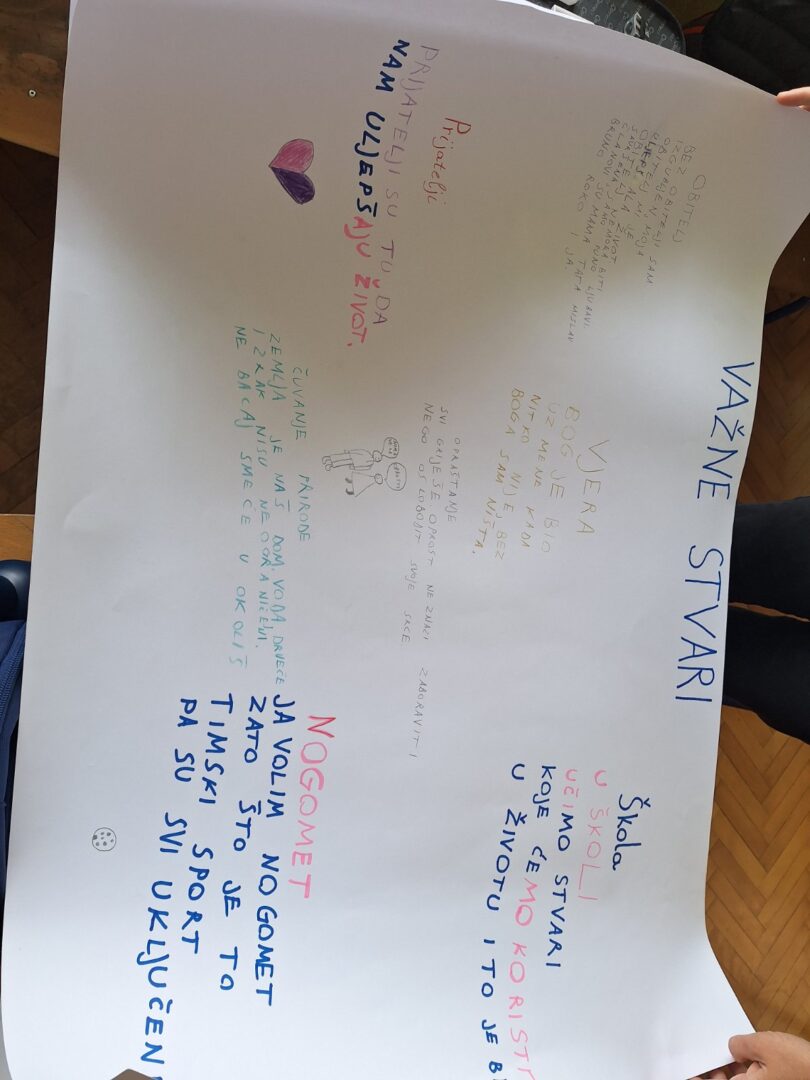 VAŽNE STVARI
OBITELJ
BEZ OBITELJI SAM
IZGUBLJEN
MI MOJA
ŽIVOT
LJUBAVI
MAMA TATA
ROKO I JA.
VJERA
BOG JE BIO
UZ MENE KADA
NITKO NIJE BEZ
BOGA SAM NIŠTA.
Škola
U ŠKOLI
UČIMO STVARI
KOJE ĆEMO KORISTI
U ŽIVOTU I TO JE B
Prijatelji
PRIJATELJI SU TU DA
NAM ULJEPŠAJU ŽIVOT.
OPRAŠTANJE
SVI GRIJEŠE OPROST NE ZNAČI ZABORAVITI
NEGO OSLOBODIT SVOJE SRCE
ČUVANJE PRIRODE
ZEMLJA JE NAŠ DOM. VODA DRVEĆE
I ZRAK NISU NEOGRANIČENI.
NE BACAJ SMEĆE U OKOLIŠ
NOGOMET
JA VOLIM NOGOMET
ZATO ŠTO JE TO
TIMSKI SPORT
PA SU SVI UKLJUČENI